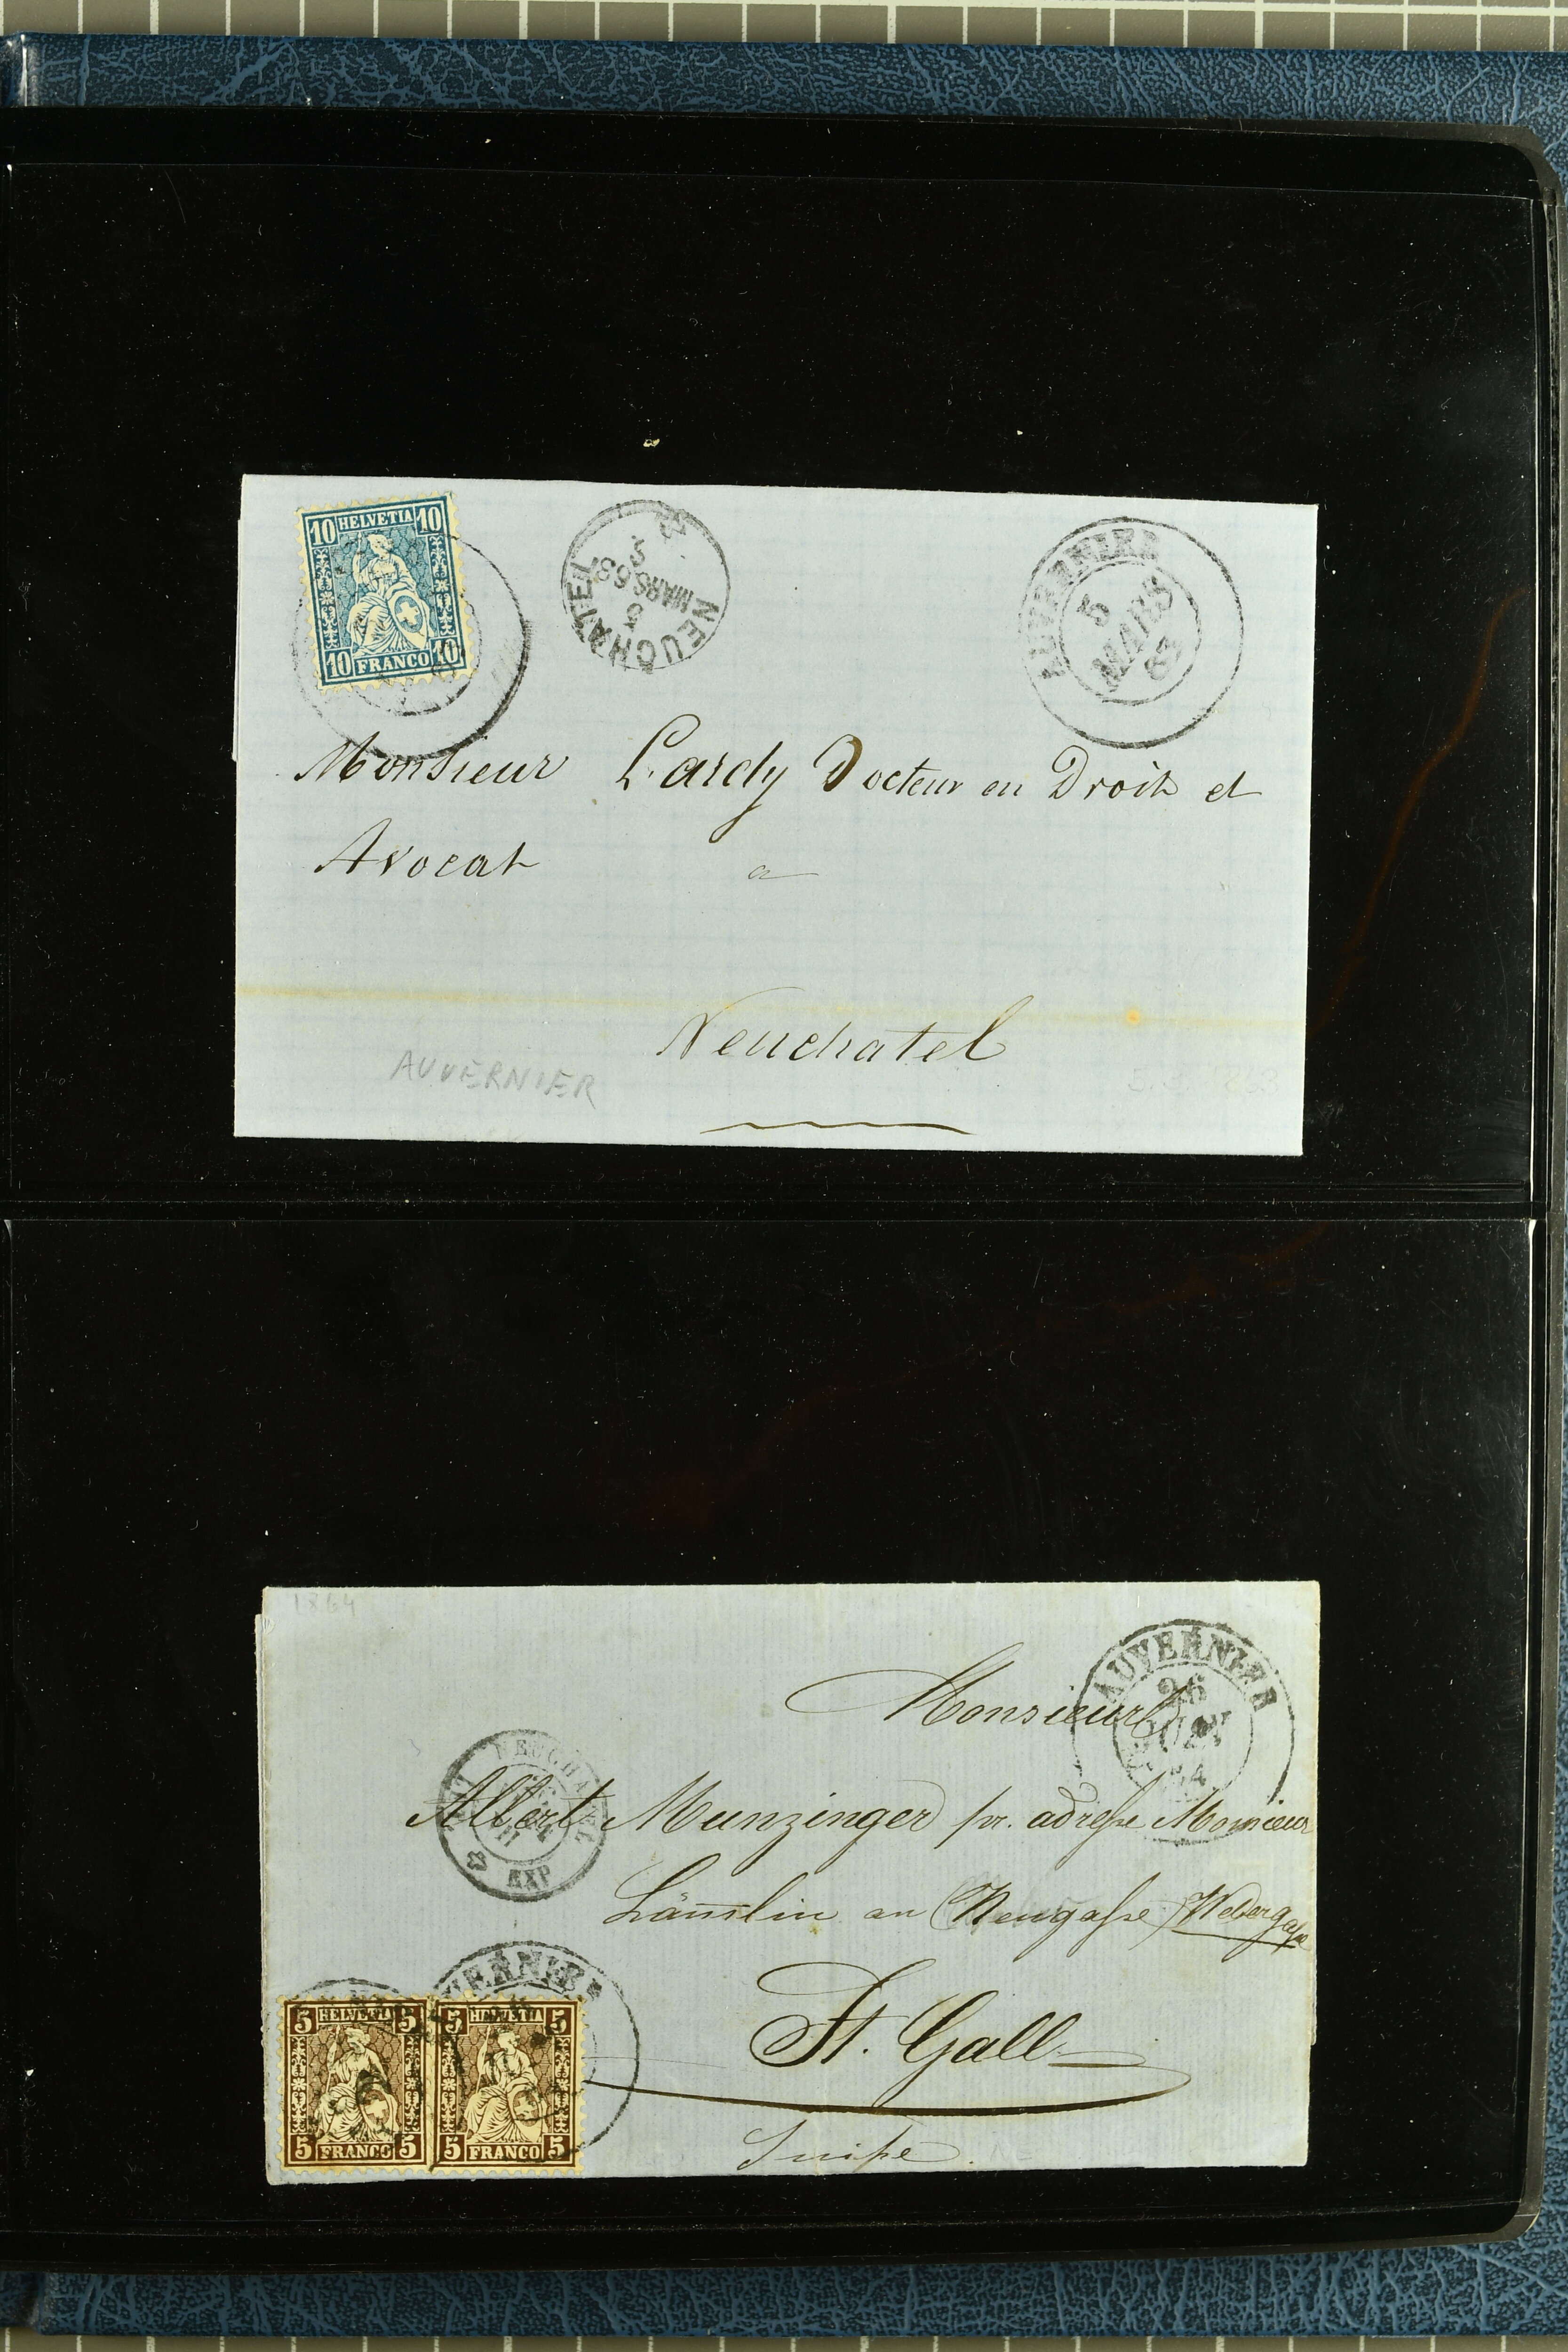 10 HELVETIA 10
10 FRANCO 10
NEUCHATEL
5
MARS 63
5
AUVERNIER
5
MARS
63
Monsieur Lardy Docteur en Droit et
Avocat a
Neuchatel
AUVERNIER
1864
AUVERNIER
26
JUIN
64
Monsieur
NEUCHATEL
EXP
Albert Munzinger pr. adresse Monsieur
Lämlin an (Neugasse) Webergasse
St. Gall
Suisse
AUVERNIER
5 HELVETIA 5
5 FRANCO 5
5 HELVETIA 5
5 FRANCO 5